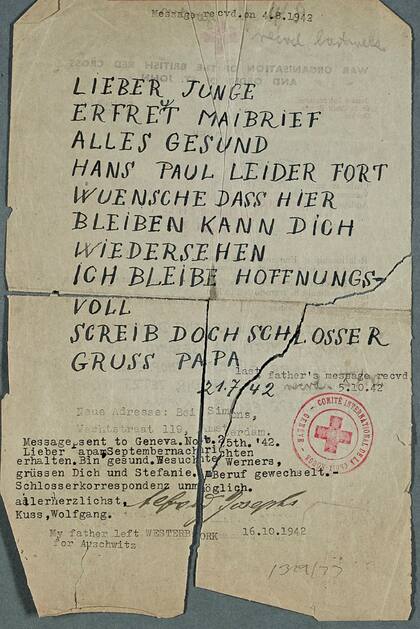 Message recvd.on 4.8.1942
WAR ORGANISATION OF THE BRITISH RED CROSS
AND
LIEBER JUNGE
ERFREUT MAIBRIEF
ALLES GESUND
HANS PAUL LEIDER FORT
WUENSCHE DASS HIER
BLEIBEN KANN DICH
WIEDERSEHEN
ICH BLEIBE HOFFNUNGS-
VOLL
SCREIB DOCH SCHLOSSER
GRUSS PAPA
21.7.42
last father's message recvd
5.10.42
Neue Adresse: Bei Simons,
119, Amsterdam.
Message sent to Geneva. Nov. 25th. '42.
Lieber Papa, Septembernachrichten
erhalten. Bin gesund. Wesuchte Werners,
grüssen Dich und Stefanie. Beruf gewechselt.-
Schlosserkorrespondenz unmöglich.
allerherzlichst,
Kuss, Wolfgang.
COMITÉ INTERNATIONAL DE LA CROIX-ROUGE - GENÈVE -
My father left WESTERBORK 16.10.1942
for Auschwitz